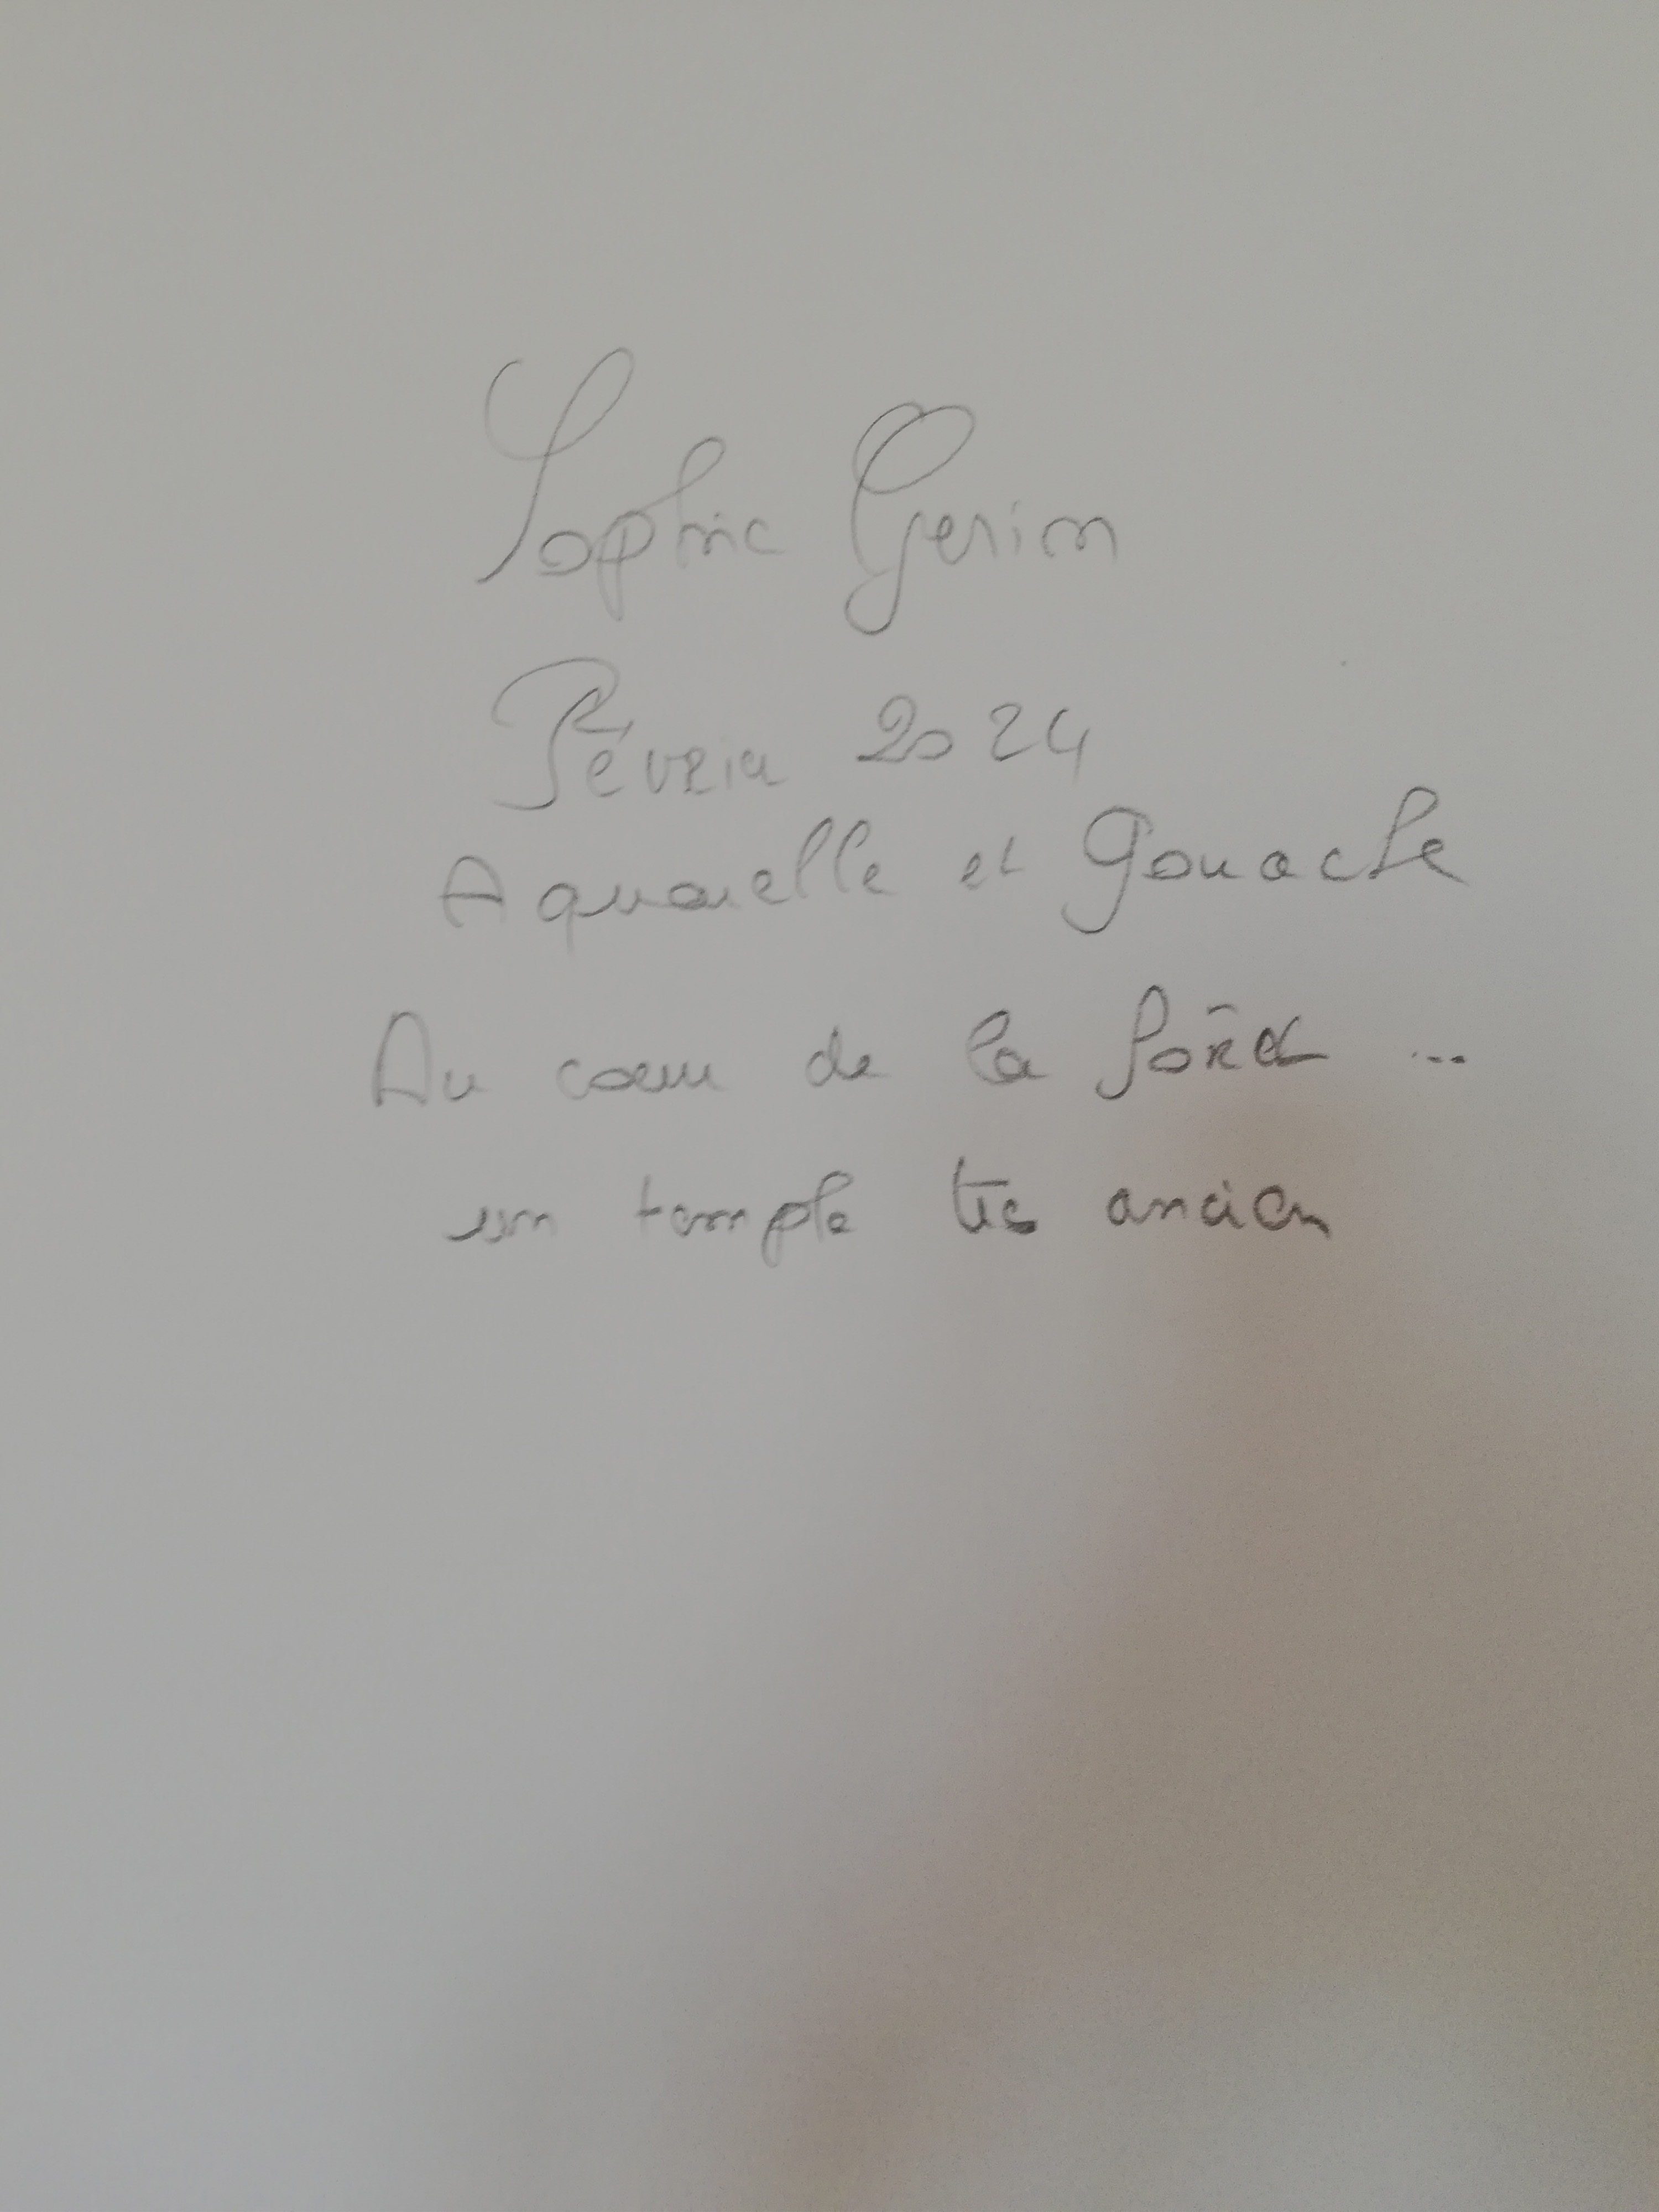 Sophie Gerin
Février 2024
Aquarelle et Gouache
Au coeur de la forêt ...
un temple très ancien